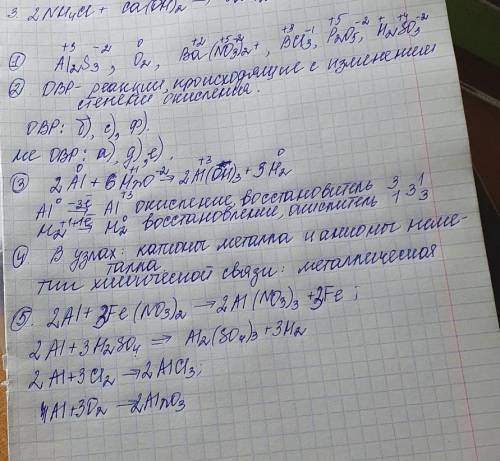 3. 2NH4Cl + Ca(OH)2 →
① Al₂⁺³S₃⁻², O₂⁰, Ba⁺²(N⁺⁵O₃⁻²)₂, B⁺³Cl₃⁻¹, P₂⁺⁵O₅⁻², H₂⁺S⁺⁴O₃⁻²
② ОВР - реакции, происходящие с изменением
степени окисления.
ОВР: б), с), ф).
не ОВР: а), д), е).
③ 2Al⁰ + 6H⁺¹O⁻² → 2Al⁺³(OH)3 + 3H2⁰
Al⁰ -3ē Al⁺³ окисление, восстановитель 3 1
H2⁺¹ +1ē H2⁰ восстановление, окислитель 1 3 3
④ В узлах: катионы металла и анионы неме-
талла.
тип химической связи: металлическая
⑤ 2Al + 3Fe(NO3)2 → 2Al(NO3)3 + 3Fe;
2Al + 3H2SO4 ⇒ Al2(SO4)3 + 3H2
2Al + 3Cl2 → 2AlCl3;
4Al + 3O2 → 2Al2O3